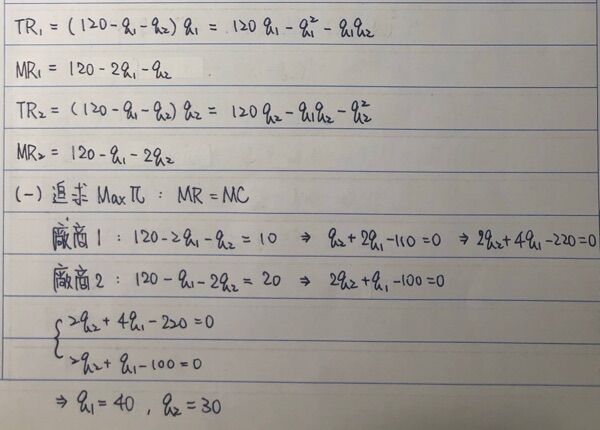 TR₁ = (120-q₁-q₂) q₁ = 120q₁-q₁²-q₁q₂
MR₁ = 120-2q₁-q₂
TR₂ = (120-q₁-q₂) q₂ = 120q₂-q₁q₂-q₂²
MR₂ = 120-q₁-2q₂
(一) 追求 Max π : MR = MC
廠商1 : 120-2q₁-q₂ = 10 ⇒ q₂+2q₁-110=0 ⇒ 2q₂+4q₁-220=0
廠商2 : 120-q₁-2q₂ = 20 ⇒ 2q₂+q₁-100=0
{2q₂+4q₁-220=0
2q₂+q₁-100=0
⇒ q₁=40 , q₂=30